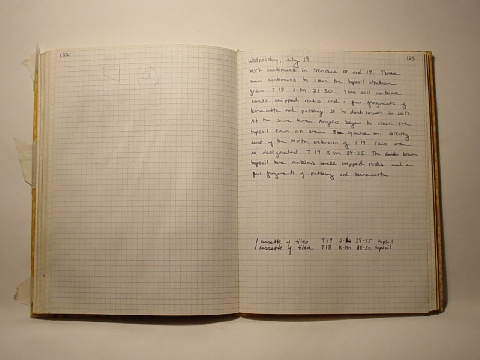 122
123
Wednesday, July 19
Work continued in Trenches 18 and 19. Three
men continued to clean the topsoil
from T 18 29-30. This soil contains
small chipped rocks and a few fragments of
terracotta and pottery. It is dark brown in color.
At the same time Angelo began to clean the
topsoil from an area square on directly
east of the North extension of T 19. This area
is designated T 19 24-25. The dark brown
topsoil here contains small chipped rocks and a
few fragments of pottery and terracotta
1 cassette of tiles T 19 24-25 topsoil
1 cassette of tiles T 18 topsoil